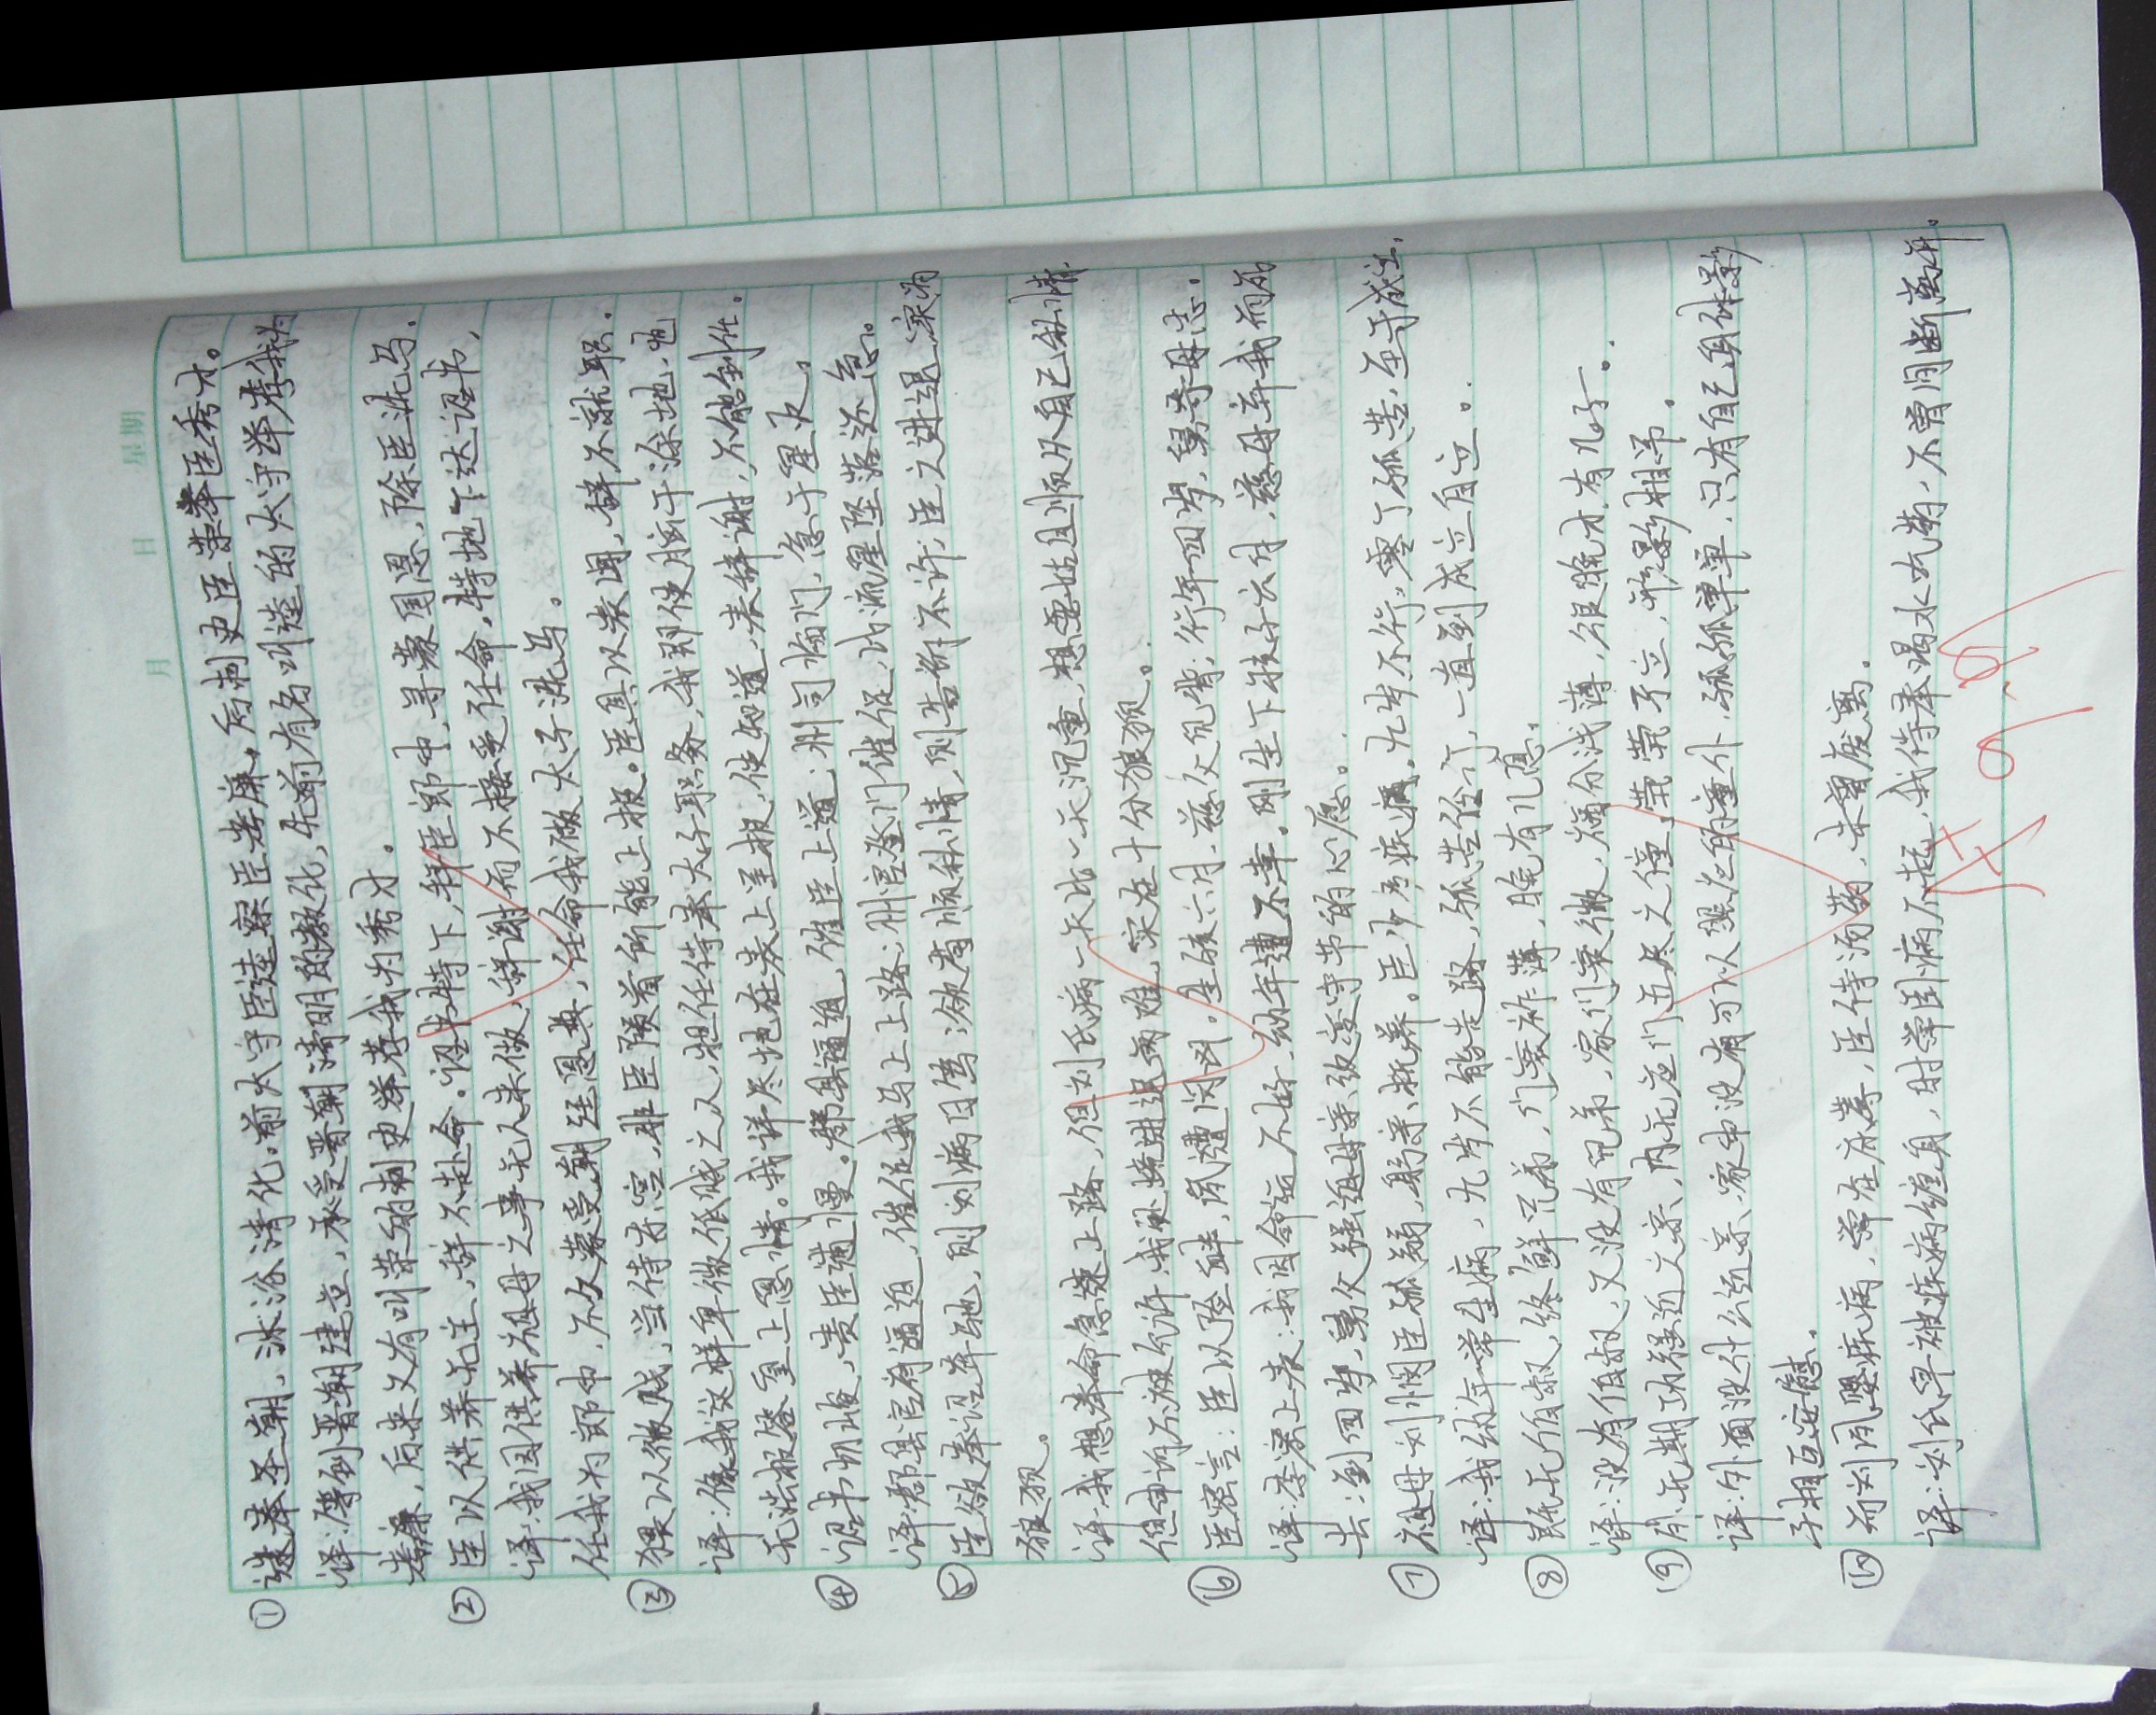 月 日 星期
①逮奉圣朝，沐浴清化。前太守臣逵察臣孝廉，后刺史臣荣举臣秀才。
译：等到晋朝建立，承受晋朝清明的教化，先前有名叫逵的太守举荐我为
孝廉，后来又有叫荣的刺史举荐我为秀才。
②臣以供养无主，辞不赴命。诏书特下，拜臣郎中，寻蒙国恩，除臣洗马。
译：我因供养祖母之事无人来做，辞谢而不接受任命，特地下达诏书，
任我为郎中，不久蒙受朝廷恩典，任命我做太子洗马。
③猥以微贱，当侍东宫，非臣陨首所能上报。臣具以表闻，辞不就职。
译：像我这样卑微低贱之人，担任侍奉太子职务，我即使肝脑涂地，也
无法报答皇上恩情。我详尽地在表上呈报，使知道，表辞谢，不能到任。
④诏书切峻，责臣逋慢。郡县逼迫，催臣上道；州司临门，急于星火。
译：郡县官府逼迫，催促我马上上路；州官登门催促，比流星坠落还急。
⑤臣欲奉诏奔驰，则刘病日笃；欲苟顺私情，则告诉不许；臣之进退，实为
狼狈。
译：我想奉命急速上路，但刘氏病一天比一天沉重，想要姑且顺从自己私情，
但申诉不被允许，我处境进退两难，实在十分狼狈。
⑥臣密言：臣以险衅，夙遭闵凶。生孩六月，慈父见背；行年四岁，舅夺母志。
译：李密上表：我因命运不好，幼年遭不幸。刚生下孩子六月，慈母弃我而死
去；到四岁，舅父强迫母亲改变守节的心愿。
⑦祖母刘悯臣孤弱，躬亲抚养。臣少多疾病，九岁不行，零丁孤苦，至于成立。
译：我幼年常生病，九岁不能走路，孤苦伶仃，一直到成立自立。
⑧既无伯叔，终鲜兄弟，门衰祚薄，晚有儿息。
译：没有伯叔，又没有兄弟，家门衰微，福分浅薄，很晚才有儿子。
⑨外无期功强近之亲，内无应门五尺之僮，茕茕孑立，形影相吊。
译：外面没什么近亲，家中没有可以照应的童仆，孤孤单单，只有自己和影
子相互安慰。
⑩而刘夙婴疾病，常在床蓐，臣侍汤药，未曾废离。
译：刘氏早被疾病缠身，时常卧病不起，我侍奉喝水吃药，不曾间断离开。